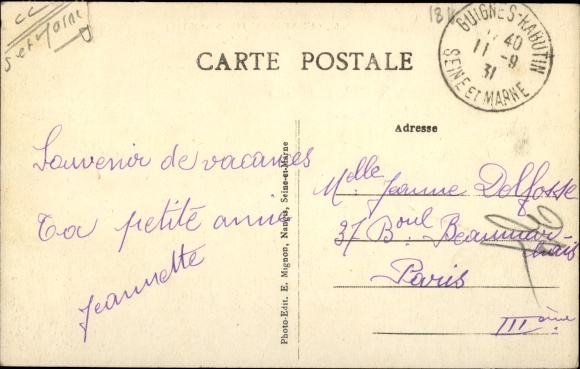 CARTE POSTALE
GUIGNES-RABUTIN
11 -9
31
SEINE ET MARNE
Souvenir de vacances
Ta petite amie
Jeannette
Photo-Edit. E. Mignon, Nangis, Seine-et-Marne
Adresse
Melle Jeanne Delfosse
37 Boul Beaumar-
chais
Paris
IIIème